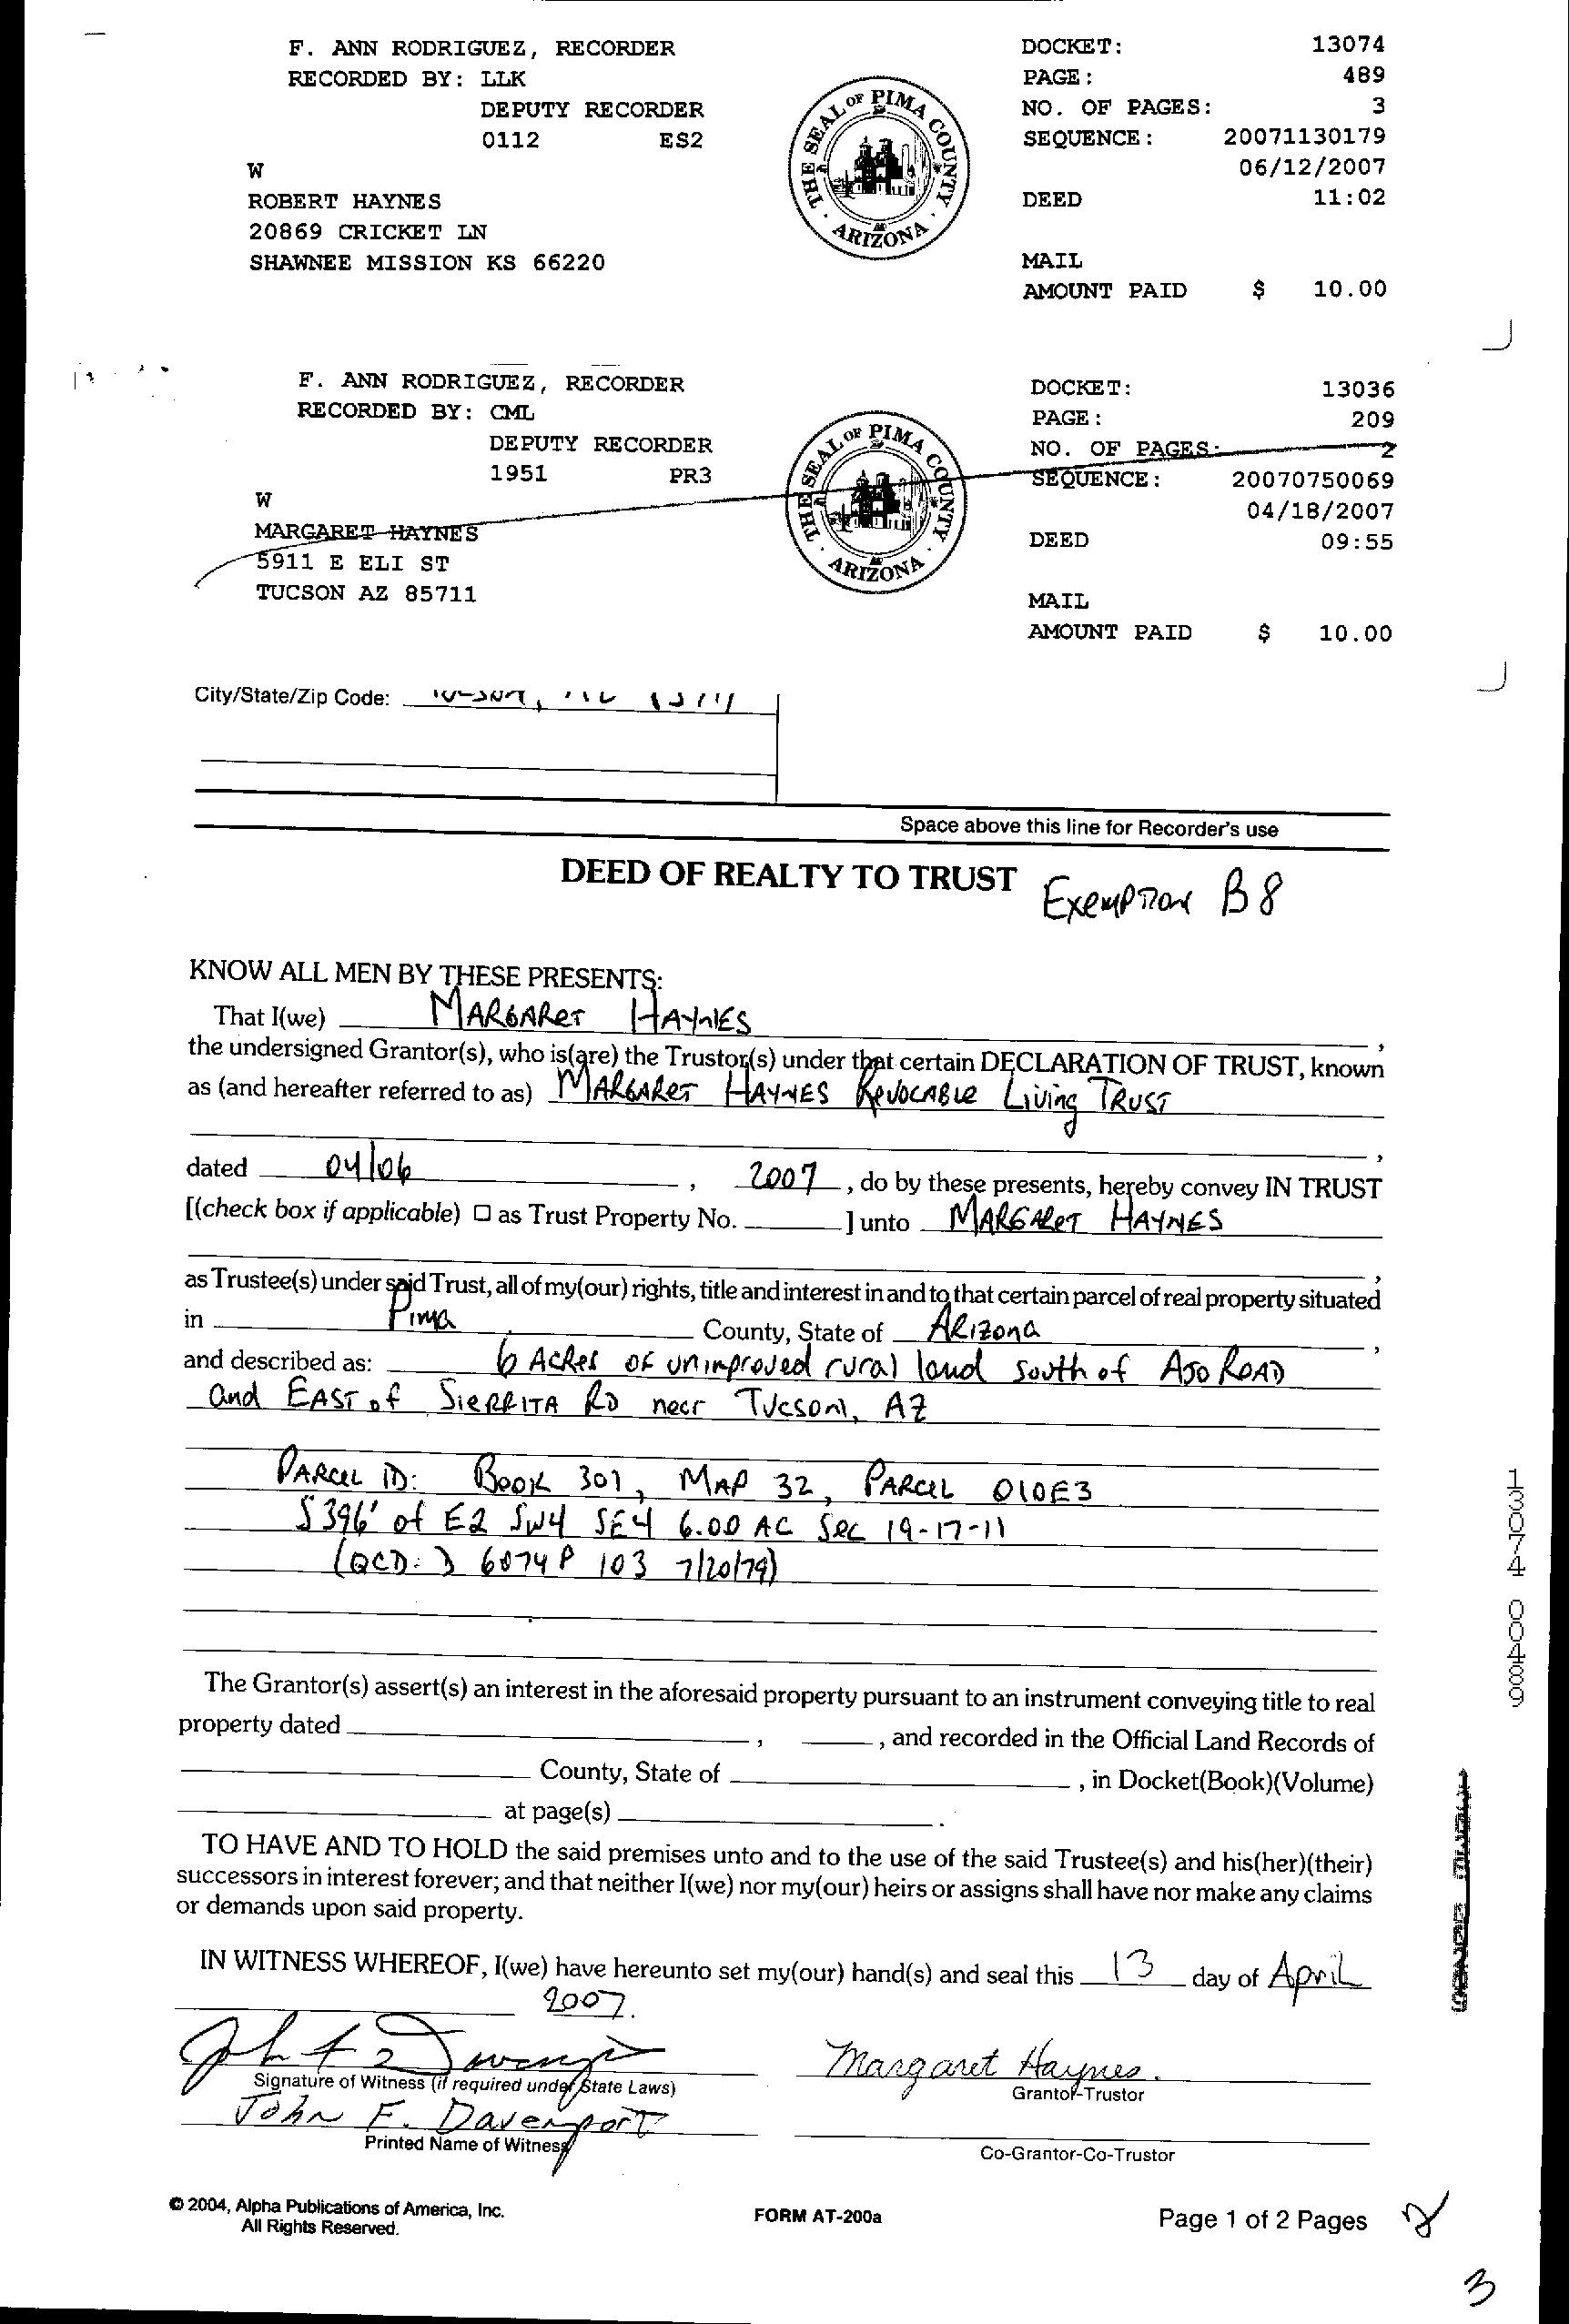 F. ANN RODRIGUEZ, RECORDER
RECORDED BY: LLK
DEPUTY RECORDER
0112 ES2
W
ROBERT HAYNES
20869 CRICKET LN
SHAWNEE MISSION KS 66220
THE SEAL OF PIMA COUNTY · ARIZONA ·
DOCKET: 13074
PAGE: 489
NO. OF PAGES: 3
SEQUENCE: 20071130179
06/12/2007
DEED 11:02
MAIL
AMOUNT PAID $ 10.00
F. ANN RODRIGUEZ, RECORDER
RECORDED BY: CML
DEPUTY RECORDER
1951 PR3
W
MARGARET HAYNES
5911 E ELI ST
TUCSON AZ 85711
THE SEAL OF PIMA COUNTY · ARIZONA ·
DOCKET: 13036
PAGE: 209
NO. OF PAGES: 2
SEQUENCE: 20070750069
04/18/2007
DEED 09:55
MAIL
AMOUNT PAID $ 10.00
City/State/Zip Code:
Space above this line for Recorder's use
DEED OF REALTY TO TRUST Exemption B8
KNOW ALL MEN BY THESE PRESENTS:
That I(we) MARGARET HAYNES,
the undersigned Grantor(s), who is(are) the Trustor(s) under that certain DECLARATION OF TRUST, known
as (and hereafter referred to as) MARGARET HAYNES REVOCABLE Living TRUST
,
dated 04/06, 2007, do by these presents, hereby convey IN TRUST
[(check box if applicable) ☐ as Trust Property No. ] unto MARGARET HAYNES
,
as Trustee(s) under said Trust, all of my(our) rights, title and interest in and to that certain parcel of real property situated
in Pima County, State of ARIZONA,
and described as: 6 Acres of unimproved rural land south of AJO ROAD
and EAST of SIERRITA RD near Tucson, AZ
PARCEL ID: BOOK 301, MAP 32, PARCEL 010E3
S 396' of E2 SW4 SE4 6.00 AC Sec 19-17-11
(QCD: D 6074 P 103 7/20/79)
The Grantor(s) assert(s) an interest in the aforesaid property pursuant to an instrument conveying title to real
property dated , , and recorded in the Official Land Records of
County, State of , in Docket(Book)(Volume)
at page(s) .
TO HAVE AND TO HOLD the said premises unto and to the use of the said Trustee(s) and his(her)(their)
successors in interest forever; and that neither I(we) nor my(our) heirs or assigns shall have nor make any claims
or demands upon said property.
IN WITNESS WHEREOF, I(we) have hereunto set my(our) hand(s) and seal this 13 day of April
2007.
Margaret Haynes.
Signature of Witness (if required under State Laws)
Grantor-Trustor
John F. Davenport
Printed Name of Witness
Co-Grantor-Co-Trustor
© 2004, Alpha Publications of America, Inc.
All Rights Reserved.
FORM AT-200a
Page 1 of 2 Pages 2
3
13074 00489